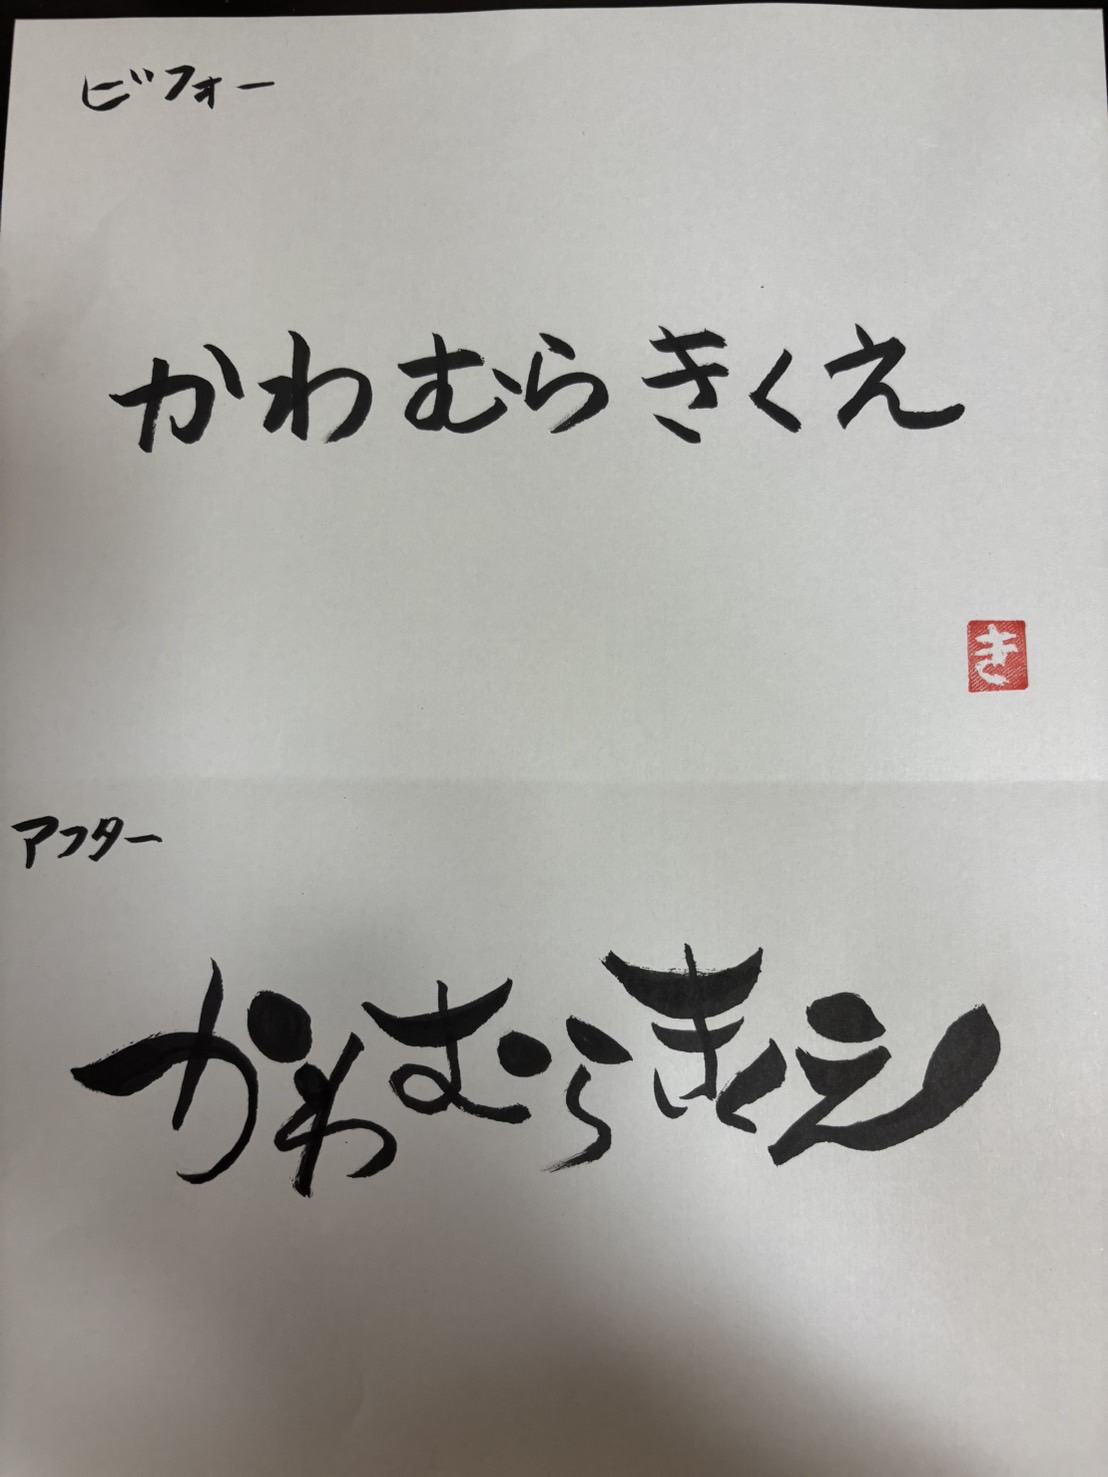 ビフォー
かわむらきくえ
き
アフター
かわむらきくえ